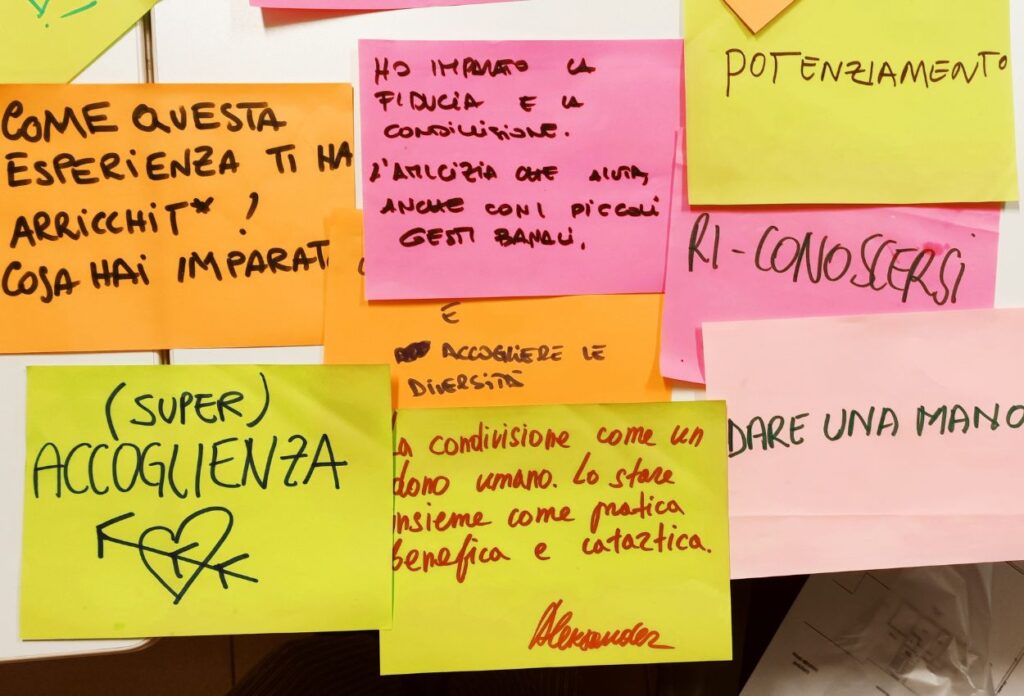 COME QUESTA
ESPERIENZA TI HA
ARRICCHIT* !
COSA HAI IMPARAT
HO IMPARATO LA
FIDUCIA E LA
CONDIVISIONE.
L'AMICIZIA CHE AIUTA,
ANCHE CON I PICCOLI
GESTI BANALI.
POTENZIAMENTO
RI-CONOSCERSI
E
ACCOGLIERE LE
DIVERSITÀ
DARE UNA MANO
(SUPER)
ACCOGLIENZA
La condivisione come un
dono umano. Lo stare
insieme come pratica
benefica e catartica.
Aleksander